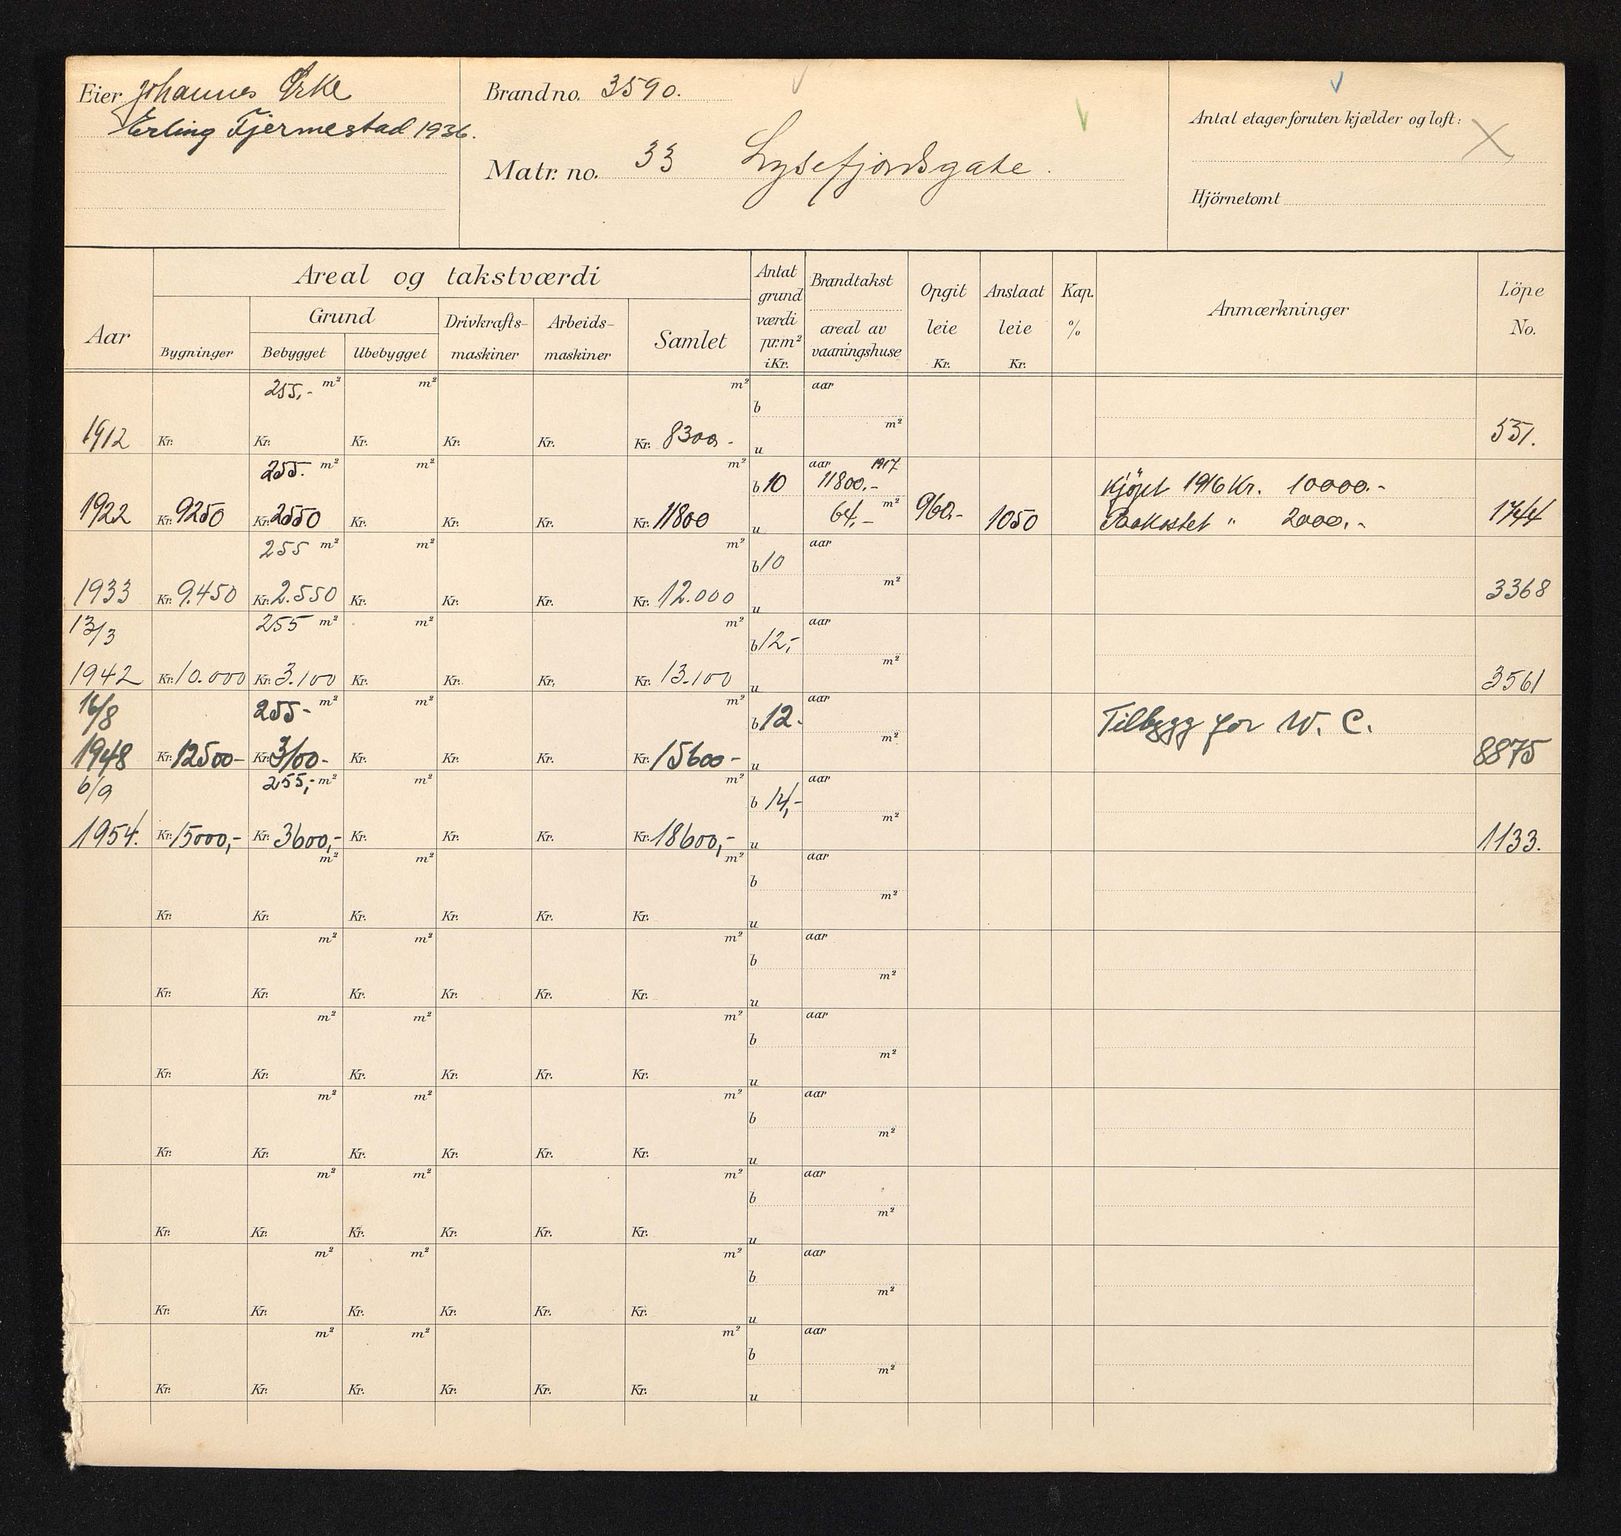 Eier Johannes Erke
Erling Tjermestad 1936.
Brand no. 3590.
Matr. no. 33 Lysefjordsgate.
Antal etager foruten kjælder og loft:
Hjörnetomt
Aar
Areal og takstværdi
Bygninger
Grund
Bebygget
Ubebygget
Drivkrafts-
maskiner
Arbeids-
maskiner
Samlet
Antat
grund
værdi
pr.m²
i Kr.
Brandtakst
areal av
vaaningshuse
Opgit
leie
Kr.
Anslaat
leie
Kr.
Kap.
%
Anmærkninger
Löpe
No.
255,- m² m² m² aar
b
m²
1912 Kr. Kr. Kr. Kr. Kr. Kr. 8300,- u 531.
255. m² m² m² aar 1917
b 10 11800.- Kjöpt 1916 Kr. 10000.-
64,- m²
1922 Kr. 9250 Kr. 2550 Kr. Kr. Kr. Kr. 11800 u 960.- 1050 Paakostet " 2000.- 1744
255 m² m² m² aar
b 10
m²
1933 Kr. 9.450 Kr. 2.550 Kr. Kr. Kr. Kr. 12.000 u 3368
13/3 255 m² m² m² aar
b 12,-
m²
1942 Kr. 10.000 Kr. 3.100 Kr. Kr. Kr. Kr. 13.100 u 3561
16/8 255- m² m² m² aar
b 12.- Tilbygg for W. C.
m²
1948 Kr. 12500- Kr. 3100- Kr. Kr. Kr. Kr. 15600- u 8875
6/9 255,- m² m² m² aar
b 14,-
m²
1954. Kr. 15000,- Kr. 3600,- Kr. Kr. Kr. Kr. 18600,- u 1133.
m² m² m² aar
b
m²
Kr. Kr. Kr. Kr. Kr. Kr. u
m² m² m² aar
b
m²
Kr. Kr. Kr. Kr. Kr. Kr. u
m² m² m² aar
b
m²
Kr. Kr. Kr. Kr. Kr. Kr. u
m² m² m² aar
b
m²
Kr. Kr. Kr. Kr. Kr. Kr. u
m² m² m² aar
b
m²
Kr. Kr. Kr. Kr. Kr. Kr. u
m² m² m² aar
b
m²
Kr. Kr. Kr. Kr. Kr. Kr. u
m² m² m² aar
b
m²
Kr. Kr. Kr. Kr. Kr. Kr. u